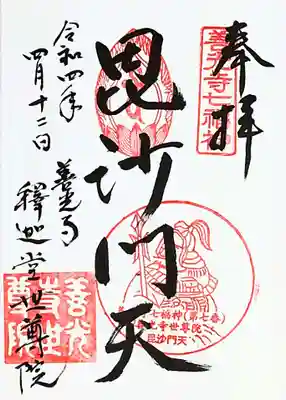 奉拝
善光寺七福神
毘沙門天
令和四年
四月十二日
善光寺
釋迦堂世尊院
七福神(第七番)
善光寺世尊院
毘沙門天
善光寺世尊院